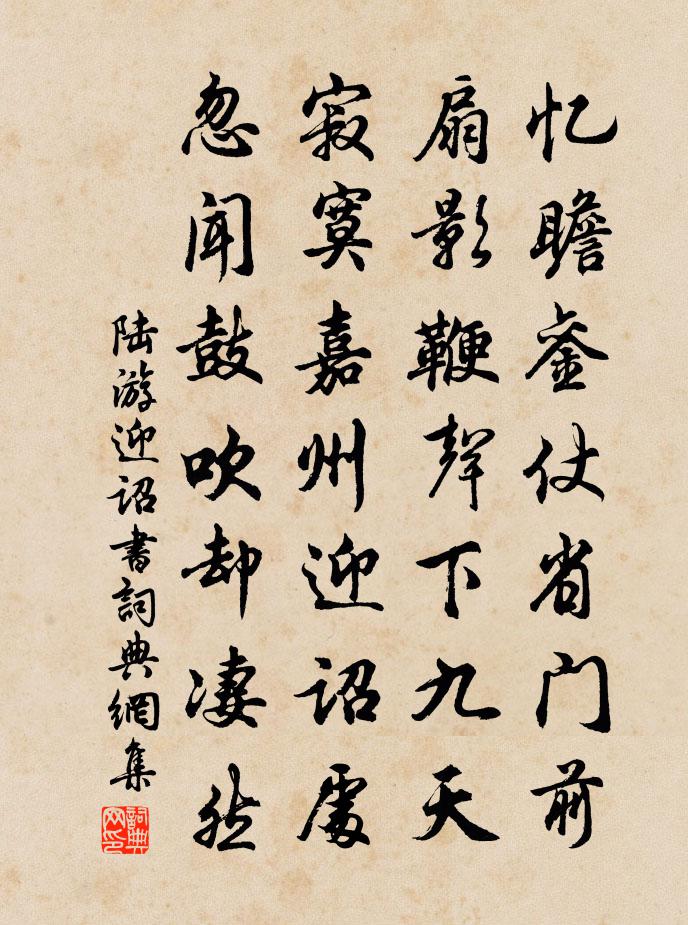 忆瞻銮仗省门前
扇影鞭聲下九天
寂寞嘉州迎诏處
忽闻鼓吹却凄然
陆游迎诏書詞典網集
詞典网印